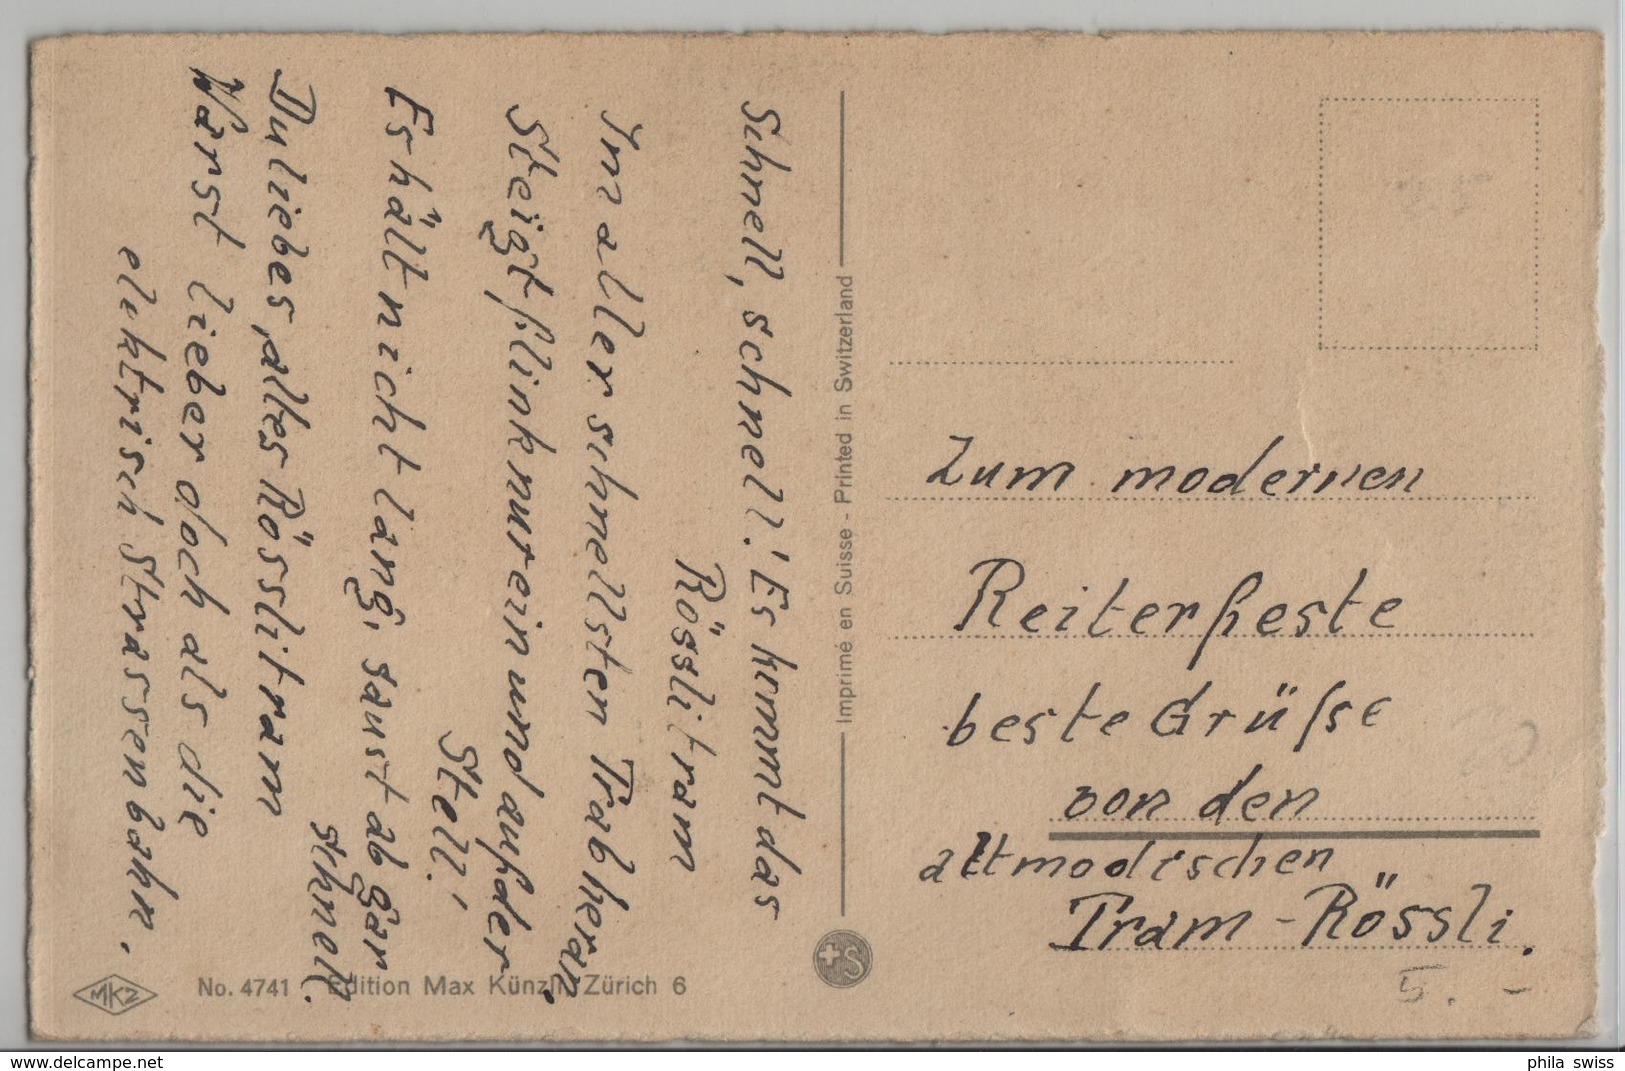 Schnell, schnell! Es kommt das
Rösslitram
In aller schnellsten Trab heran.
Steigt flink nur ein und auf der
Stell!
Es hält nicht lang, saust ab gar
schnell.
Du liebes, altes Rösslitram
Warst lieber doch als die
elektrisch Strassenbahn.
Imprimé en Suisse - Printed in Switzerland
+S
Zum modernen
Reiterfeste
beste Grüsse
von den
altmodischen
Tram-Rössli.
5. -
MK2
No. 4741
Edition Max Künzli, Zürich 6
www.delcampe.net
phila_swiss